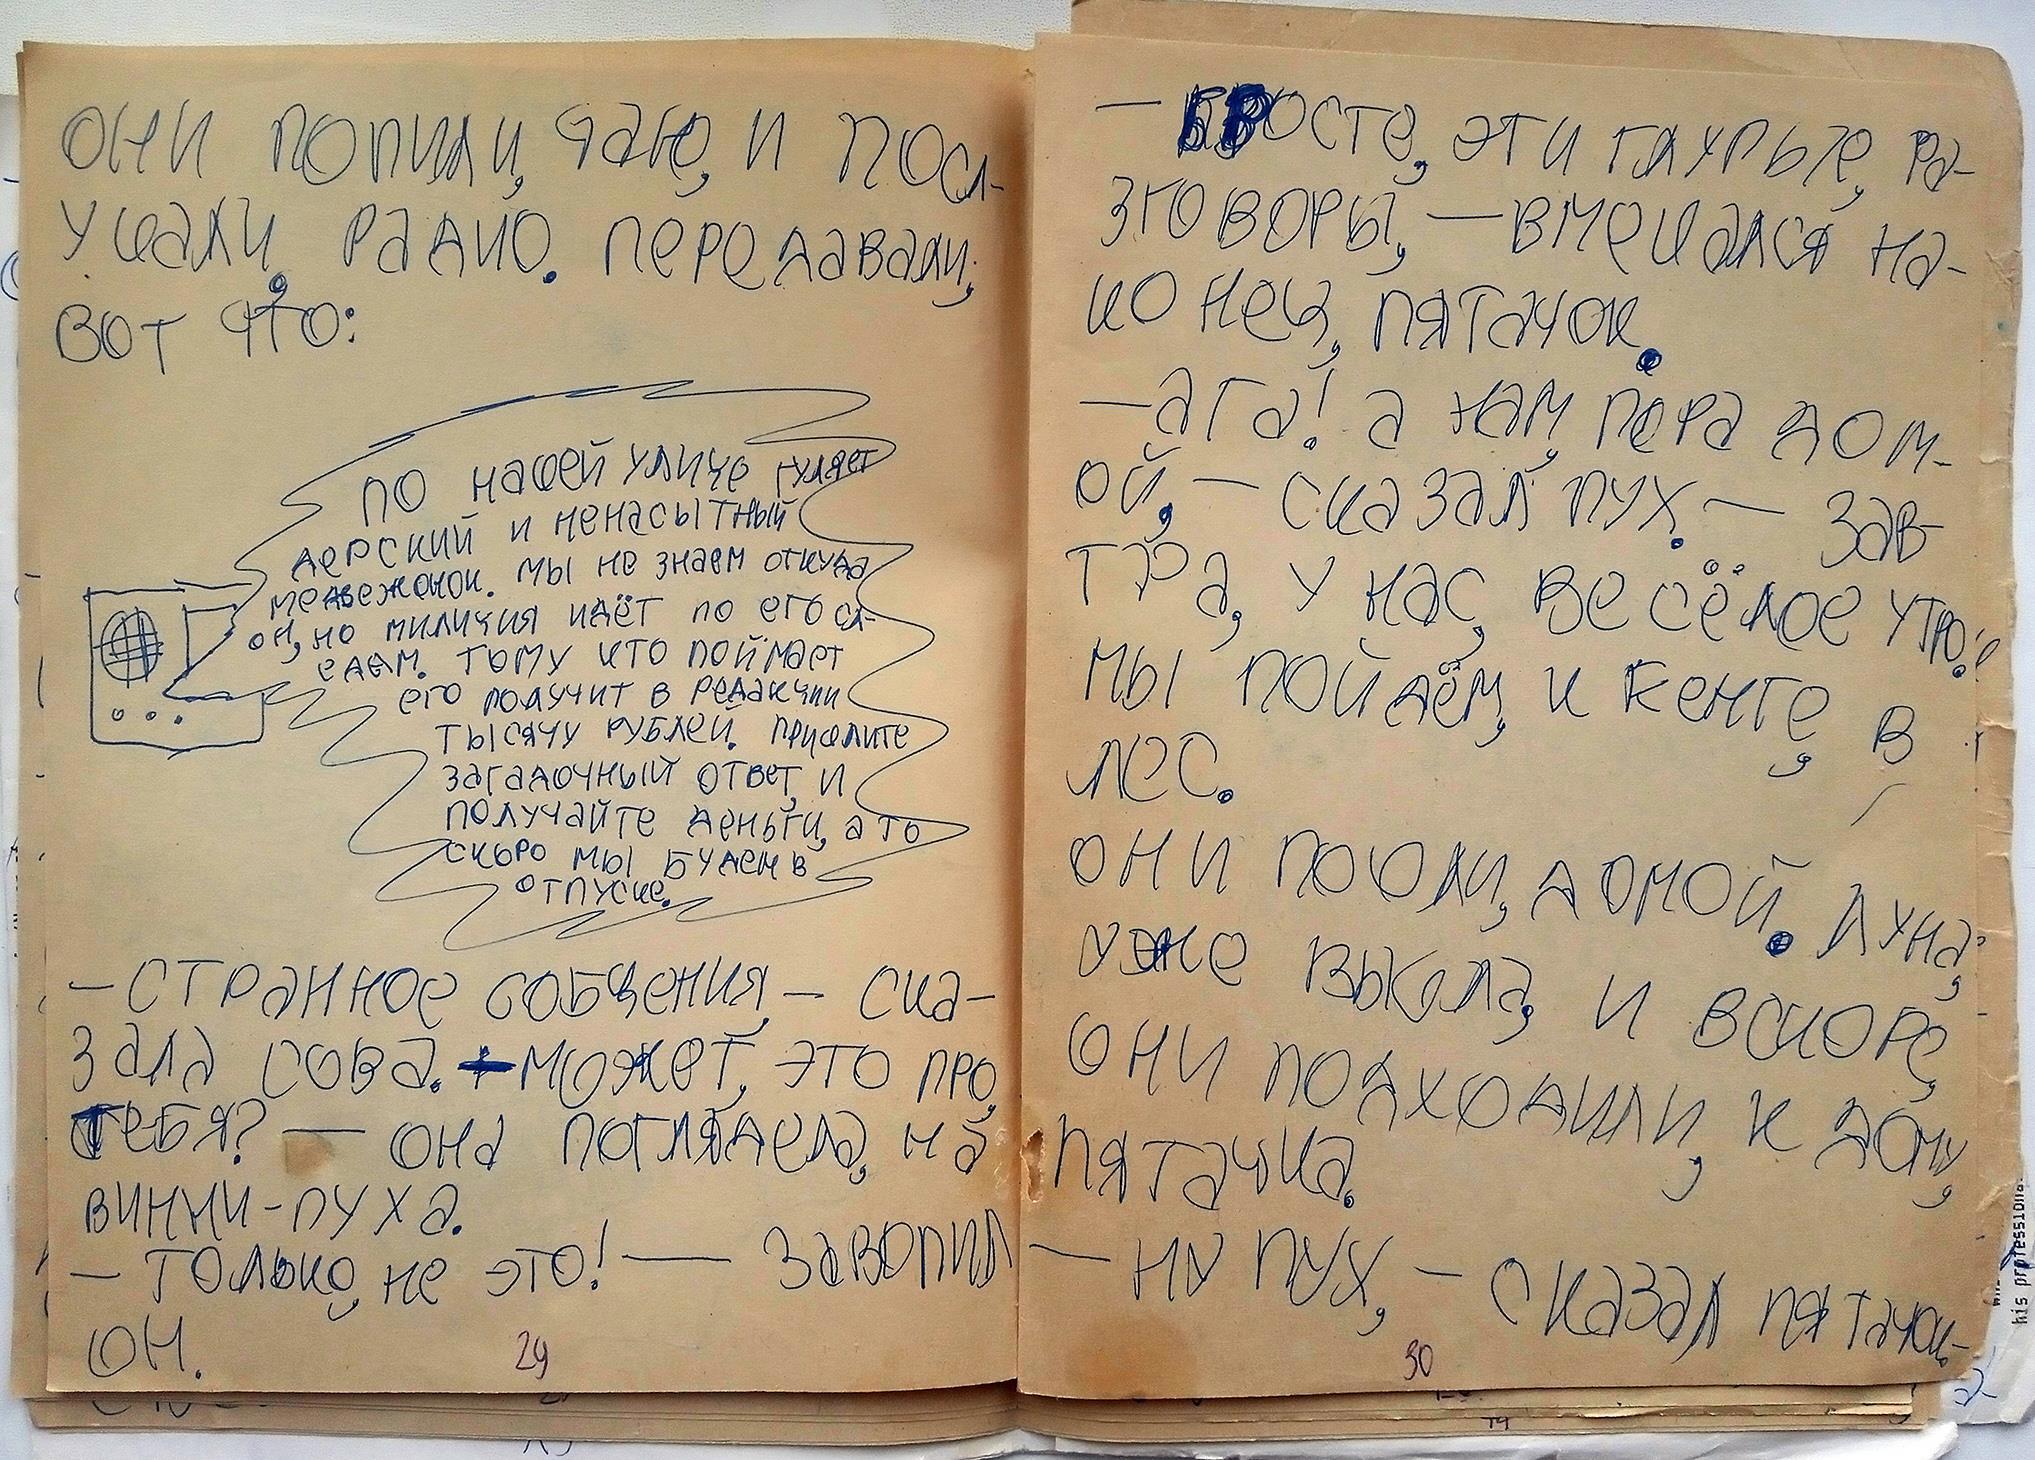 они попили, чаю, и посл-
ушали, радио. передавали,
вот что:
по нашей улице гуляет
дерский и ненасытный
медвежонок. мы не знаем откуда
он, но милиция идёт по его сл-
едам. тому кто поймает
его получит в редакции
тысячу рублей. пришлите
загадочный ответ, и
получайте деньги, а то
скоро мы будем в
отпуске.
— странное собщения, — ска-
зала сова. — может, это про,
тебя? — она поглядела, на
винни-пуха.
— только, не это! — завопил
он.
29
— бросте, эти глупые, ра-
зговоры, — вмешался на-
конец, пятачок.
— ага! а нам, пора дом-
ой, — сказал пух. — зав-
тра, у нас, весёлое утро!
мы пойдём, к кенге, в
лес.
они пошли, домой. луна,
уже взошла, и вскоре,
они подходили, к дому,
пятачка.
— ну пух, — сказал пятачок.
30
his professiona